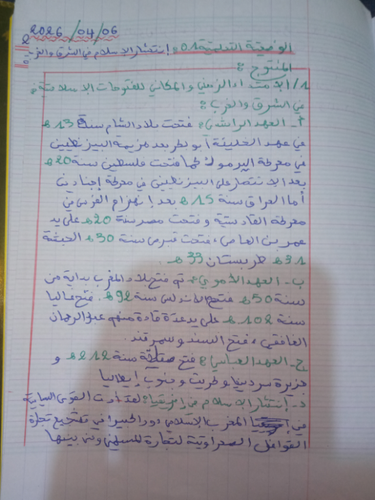 2026/04/06
الوضعية التعلمية 01: إنتشار الاسلام في الشرق والغرب
المنتوج:
1/ الامتداد الزمني والمكاني للفتوحات الاسلامية
في الشرق والغرب:
أ- العهد الراشدي: فتحت بلاد الشام سنة 13هـ
في عهد الخليفة أبو بكر بعد هزيمة البيزنطيين
في معركة اليرموك كما فتحت فلسطين سنة 20هـ
بعد الانتصار على البيزنطيين في معركة إجنادين
أما العراق سنة 15هـ بعد إنهزام الفرس في
معركة القادسية وفتحت مصر سنة 20هـ على يد
عمر بن العاص، فتحت قبرص سنة 30هـ الحبشة
31هـ طربستان 33هـ.
ب- العهد الأموي: تم فتح بلاد المغرب بداية من
سنة 50هـ فتح الأندلس سنة 92هـ. فتح غاليا
سنة 102هـ على يد عدة قادة منهم عبد الرحمان
الغافقي، فتح السند وسمرقند.
ج- العهد العباسي: فتح صقلية سنة 212هـ و
جزيرة سردينيا وكريت وجنوب إيطاليا
د- إنتشار الاسلام في إفريقيا: لقد أدت القوى السياسية
في المغرب الإسلامي دورا كبيرا في تشجيع تجارة
القوافل الصحراوية لتجارة المسلمين ومن بينها